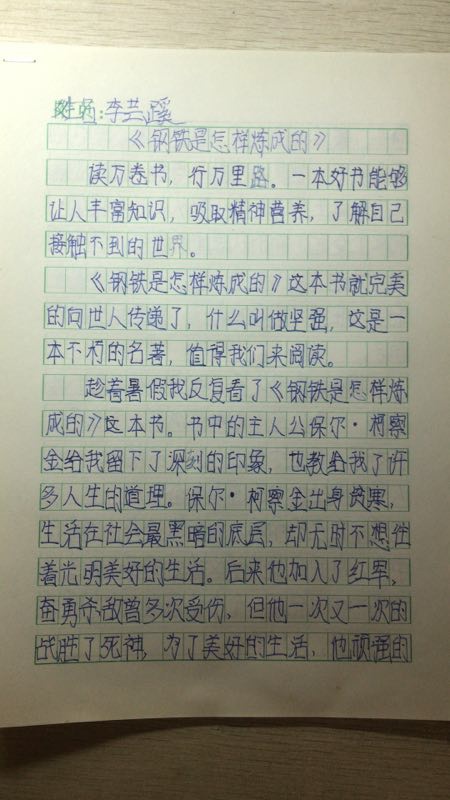 姓名:李芸蹊
《钢铁是怎样炼成的》
读万卷书，行万里路。一本好书能够
让人丰富知识，吸取精神营养，了解自己
接触不到的世界。
《钢铁是怎样炼成的》这本书就完美
的向世人传递了，什么叫做坚强，这是一
本不朽的名著，值得我们来阅读。
趁着暑假我反复看了《钢铁是怎样炼
成的》这本书。书中的主人公保尔·柯察
金给我留下了深刻的印象，也教给我了许
多人生的道理。保尔·柯察金出身贫寒，
生活在社会最黑暗的底层，却无时不想往
着光明美好的生活。后来他加入了红军，
奋勇杀敌曾多次受伤，但他一次又一次的
战胜了死神，为了美好的生活，他顽强的